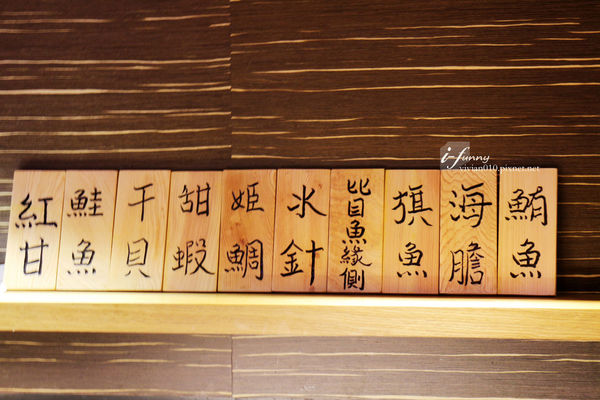 紅甘
鮭魚
干貝
甜蝦
姫鯛
水針
比目魚緣側
旗魚
海膽
鮪魚
i-funny
vivian010.pixnet.net